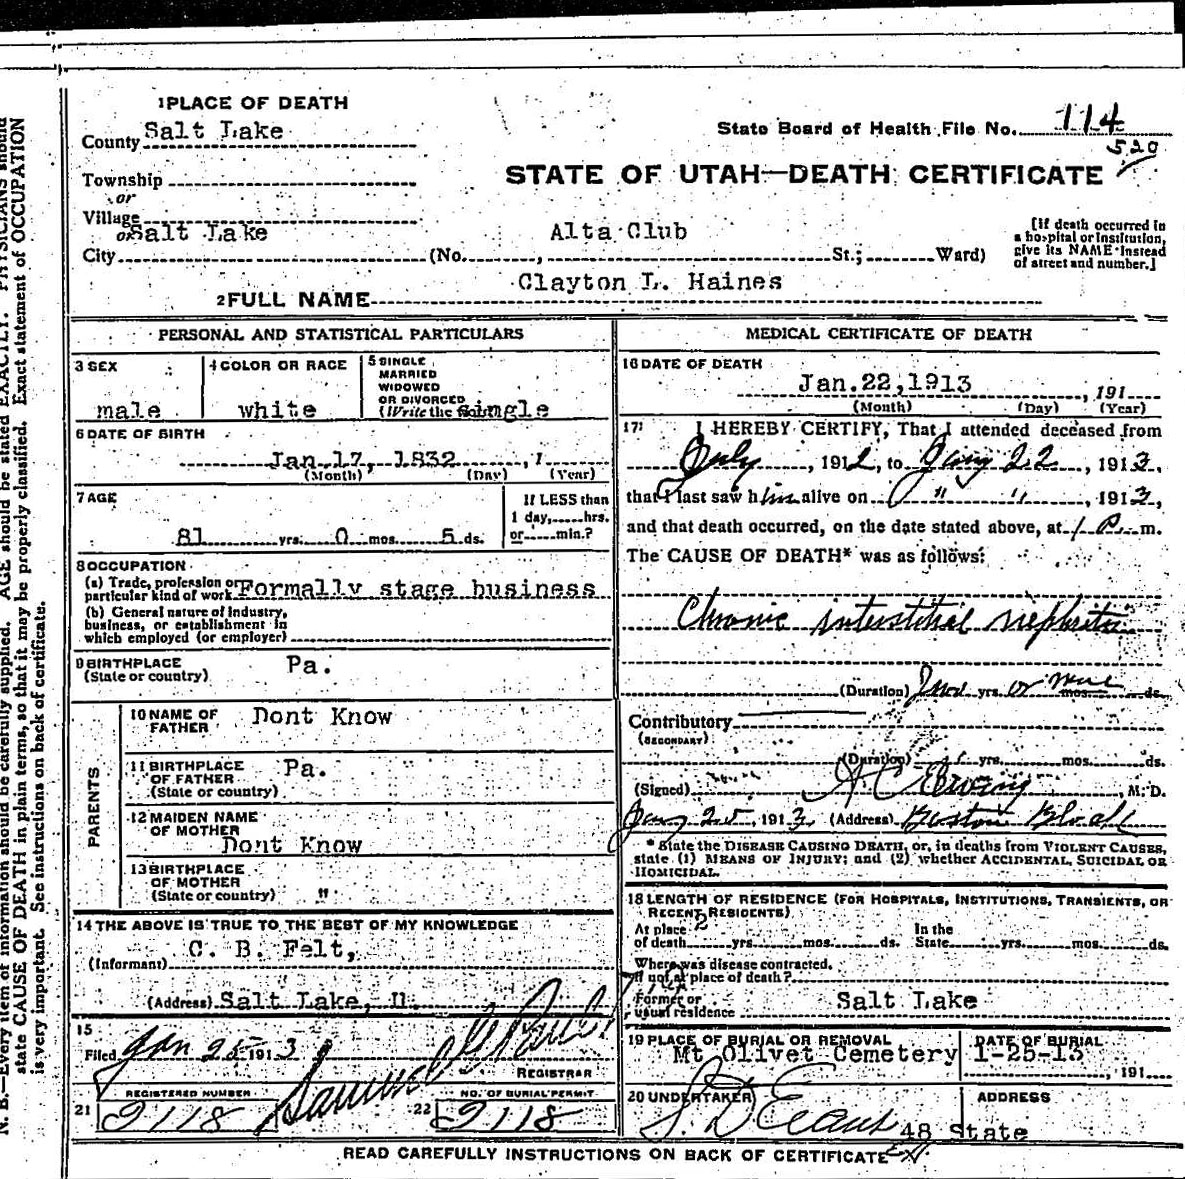 1 PLACE OF DEATH
County Salt Lake
State Board of Health File No. 114
520
Township
or
Village
STATE OF UTAH—DEATH CERTIFICATE
or Salt Lake
City (No. , Alta Club St.; Ward)
[If death occurred in a hospital or institution, give its NAME instead of street and number.]
2 FULL NAME Clayton L. Haines
PERSONAL AND STATISTICAL PARTICULARS
3 SEX
male
4 COLOR OR RACE
white
5 SINGLE
MARRIED
WIDOWED
OR DIVORCED
(Write the single
6 DATE OF BIRTH
Jan 17, 1832 , 1
(Month) (Day) (Year)
7 AGE
81 yrs. 0 mos. 5 ds.
If LESS than
1 day, hrs.
or min.?
8 OCCUPATION
(a) Trade, profession or
particular kind of work Formally stage business
(b) General nature of industry,
business, or establishment in
which employed (or employer)
9 BIRTHPLACE
(State or country) Pa.
PARENTS
10 NAME OF
FATHER Dont Know
11 BIRTHPLACE
OF FATHER
(State or country) Pa.
12 MAIDEN NAME
OF MOTHER
Dont Know
13 BIRTHPLACE
OF MOTHER
(State or country) "
14 THE ABOVE IS TRUE TO THE BEST OF MY KNOWLEDGE
(Informant) C. B. Felt,
(Address) Salt Lake, U.
15
Filed Jan 25 1913 Samuel G Paul
REGISTRAR
21 REGISTERED NUMBER
2118
22 NO. OF BURIAL PERMIT
2118
MEDICAL CERTIFICATE OF DEATH
16 DATE OF DEATH
Jan. 22, 1913 , 191
(Month) (Day) (Year)
17 I HEREBY CERTIFY, That I attended deceased from
July , 1912, to Jany 22 , 1913,
that I last saw him alive on " " , 1913,
and that death occurred, on the date stated above, at 1 P. m.
The CAUSE OF DEATH* was as follows:
Chronic interstitial nephritis
(Duration) yrs. or more mos. ds.
Contributory
(SECONDARY)
(Duration) yrs. mos. ds.
(Signed) A C Ewing , M. D.
Jany 25, 1913 (Address) Boston Block
* State the DISEASE CAUSING DEATH, or, in deaths from VIOLENT CAUSES,
state (1) MEANS OF INJURY; and (2) whether ACCIDENTAL, SUICIDAL OR
HOMICIDAL.
18 LENGTH OF RESIDENCE (FOR HOSPITALS, INSTITUTIONS, TRANSIENTS, OR
RECENT RESIDENTS)
At place
of death yrs. mos. ds.
In the
State yrs. mos. ds.
Where was disease contracted,
if not at place of death?
Former or
usual residence Salt Lake
19 PLACE OF BURIAL OR REMOVAL
Mt Olivet Cemetery
DATE OF BURIAL
1-25-13 , 191
20 UNDERTAKER
S. D Evans
ADDRESS
48 State
READ CAREFULLY INSTRUCTIONS ON BACK OF CERTIFICATE
N. B.—Every item of information should be carefully supplied. AGE should be stated EXACTLY. PHYSICIANS should
state CAUSE OF DEATH in plain terms, so that it may be properly classified. Exact statement of OCCUPATION
is very important. See instructions on back of certificate.